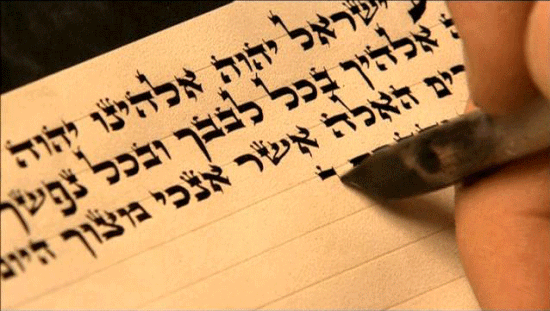 ע ישראל יהוה אלהינו יהוה
ה אלהיך בכל לבבך ובכל נפשך
רים האלה אשר אנכי מצוך היום